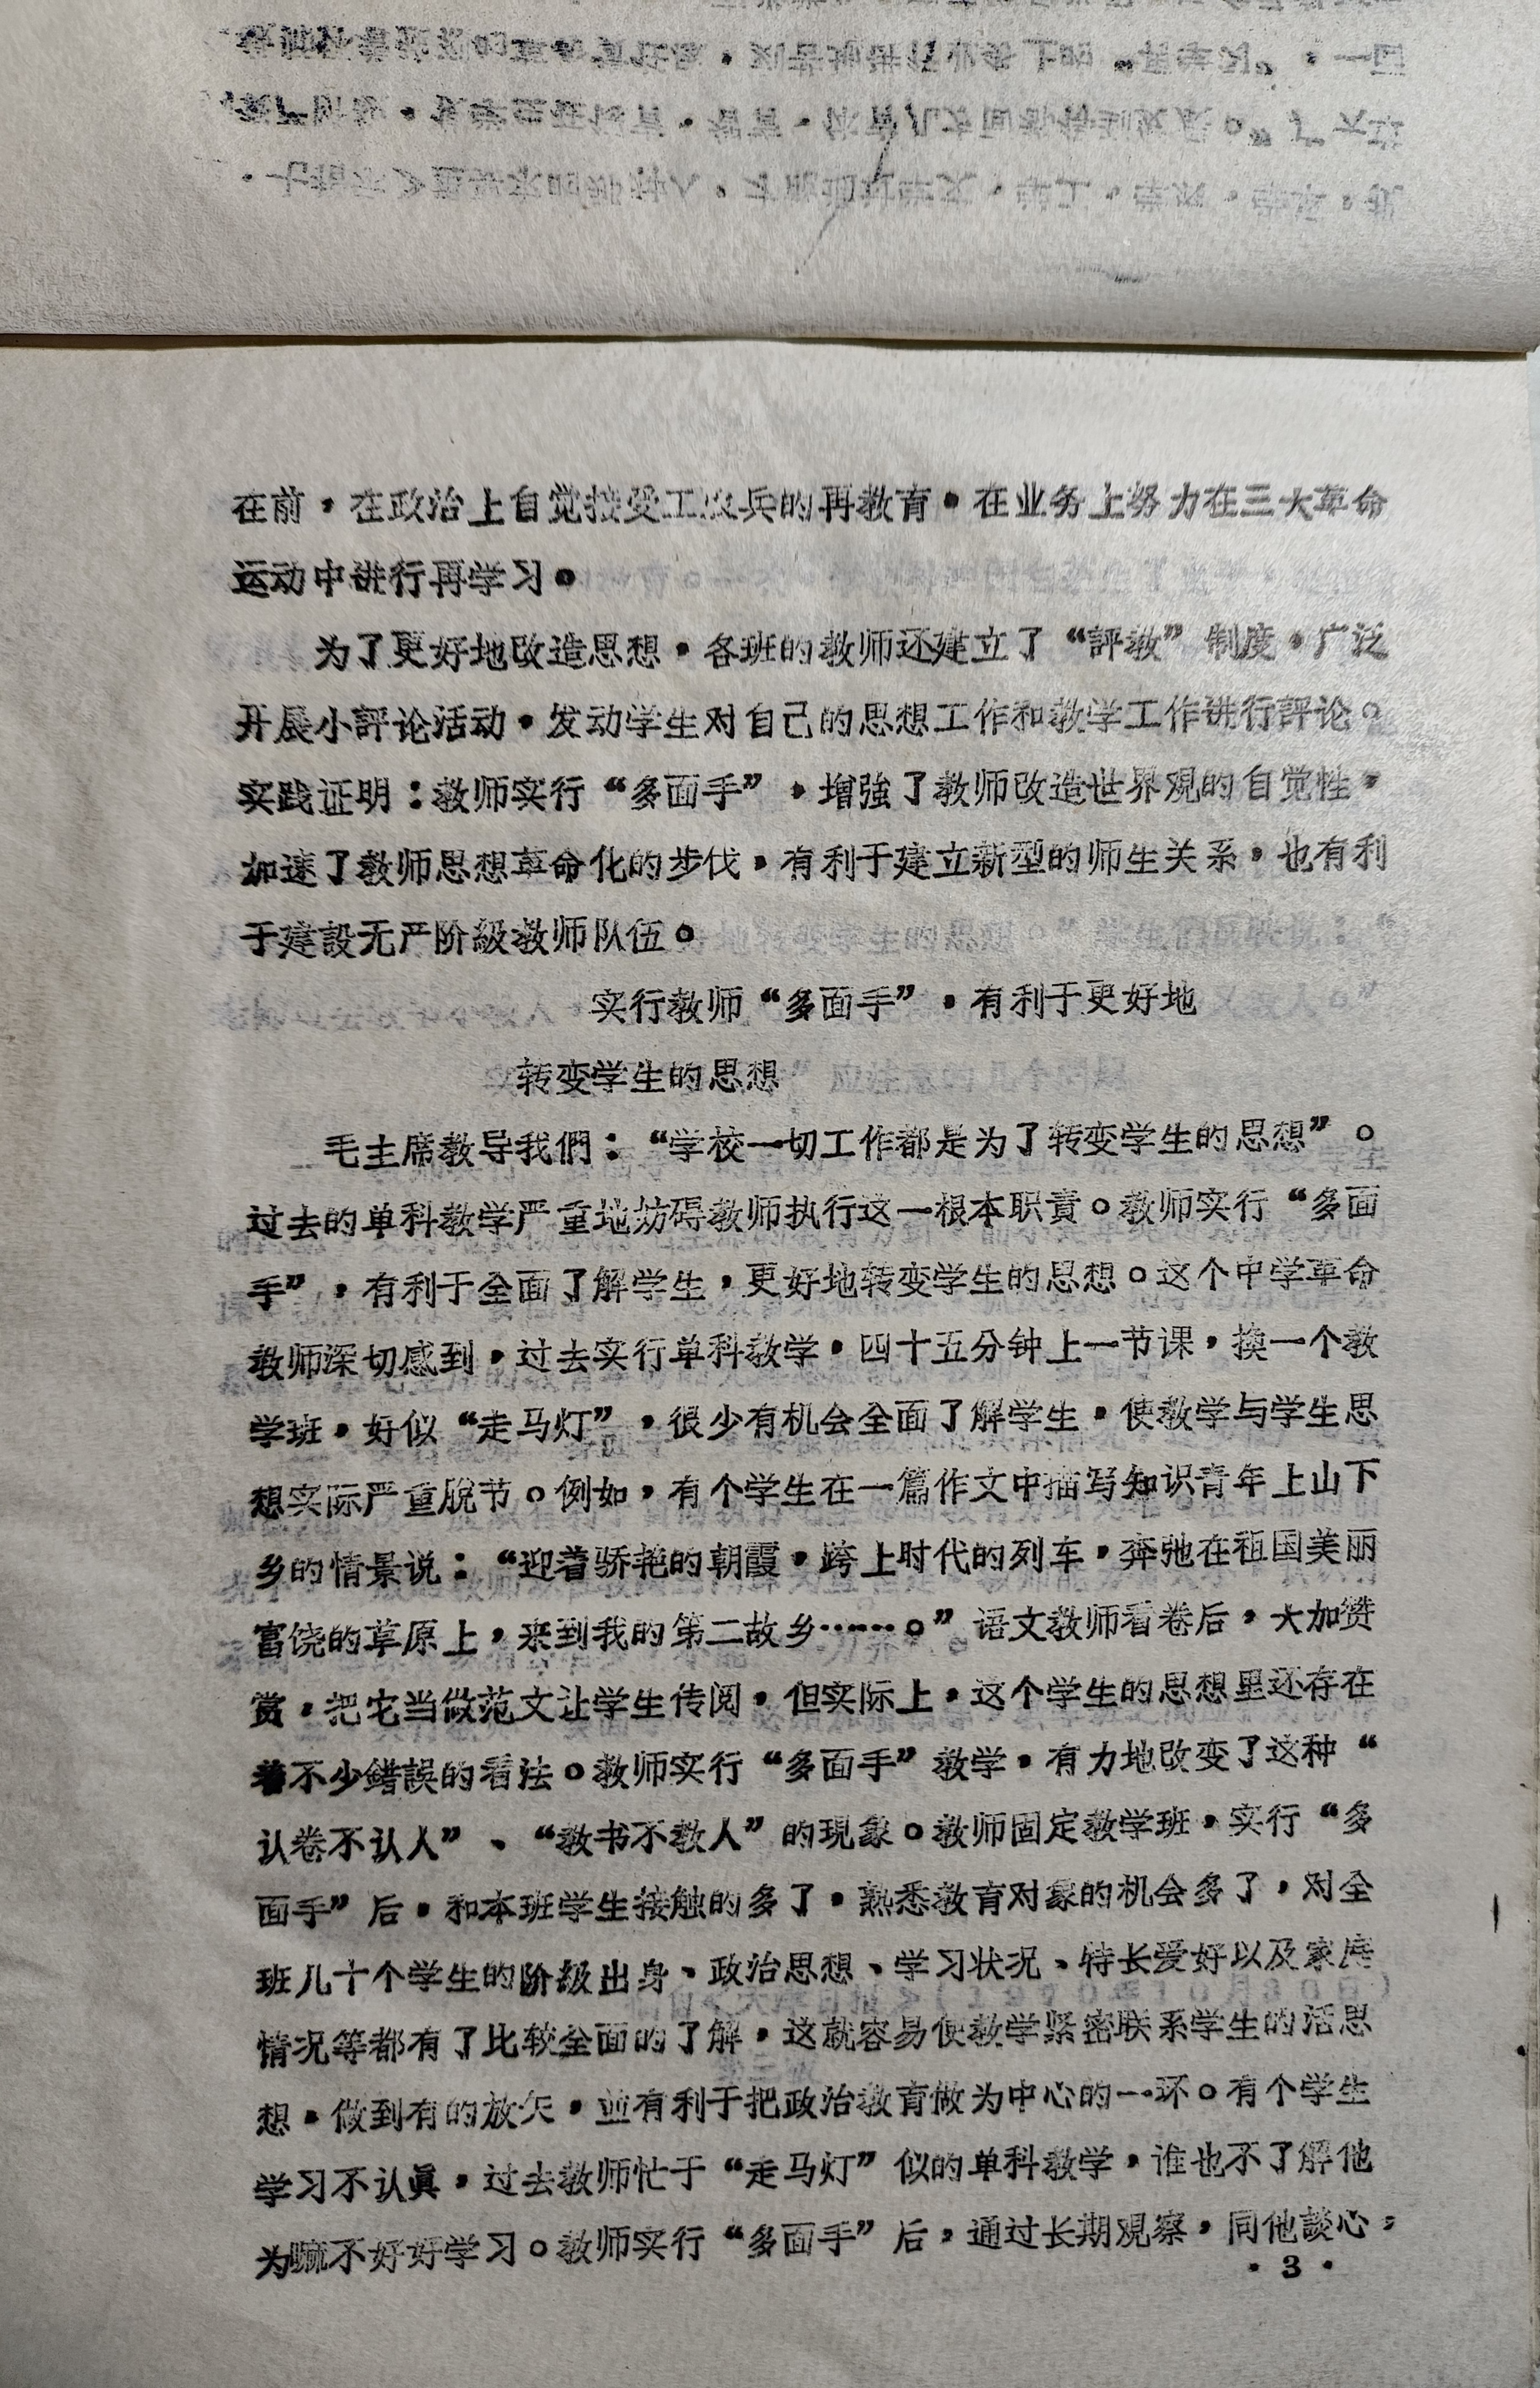 在前，在政治上自觉接受工农兵的再教育，在业务上努力在三大革命
运动中进行再学习。
为了更好地改造思想，各班的教师还建立了“評教”制度，广泛
开展小評论活动，发动学生对自己的思想工作和教学工作进行評论。
实践证明：教师实行“多面手”，增強了教师改造世界观的自觉性，
加速了教师思想革命化的步伐，有利于建立新型的师生关系，也有利
于建設无产阶級教师队伍。
实行教师“多面手”，有利于更好地
转变学生的思想
毛主席教导我們：“学校一切工作都是为了转变学生的思想”。
过去的单科教学严重地妨碍教师执行这一根本职責。教师实行“多面
手”，有利于全面了解学生，更好地转变学生的思想。这个中学革命
教师深切感到，过去实行单科教学，四十五分钟上一节课，换一个教
学班，好似“走马灯”，很少有机会全面了解学生，使教学与学生思
想实际严重脫节。例如，有个学生在一篇作文中描写知识青年上山下
乡的情景说：“迎着骄艳的朝霞，跨上时代的列车，奔驰在祖国美丽
富饶的草原上，来到我的第二故乡……。”语文教师看卷后，大加赞
赏，把它当做范文让学生传阅，但实际上，这个学生的思想里还存在
着不少錯誤的看法。教师实行“多面手”教学，有力地改变了这种“
认卷不认人”、“教书不教人”的現象。教师固定教学班，实行“多
面手”后，和本班学生接触的多了，熟悉教育对象的机会多了，对全
班几十个学生的阶級出身、政治思想、学习状况、特长爱好以及家庭
情况等都有了比较全面的了解，这就容易使教学紧密联系学生的活思
想，做到有的放矢，並有利于把政治教育做为中心的一环。有个学生
学习不认眞，过去教师忙于“走马灯”似的单科教学，谁也不了解他
为嘛不好好学习。教师实行“多面手”后，通过长期观察，同他談心，
·3·